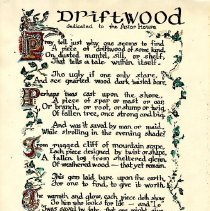 Driftwood
dedicated to the Astor House
Pray, tell just why one seems to find
A piece of driftwood of some kind,
On dusted mantel, sill, or shelf,
That tells a tale within itself;
Tho ugly if one only stare,
And see gnarled wood dark twisted bare.
Perhaps 'twas cast upon the shore,
A piece of spar or mast or oar,
Or branch, or root, or stump or twig,
Of fallen tree, once strong and big,
And was it saved by man or maid,
While strolling in the evening shade
From rugged cliff of mountain rope,
Each piece designed by twist or shape,
A fallen log from sheltered glens,
Of weathered wood — that yet remain.
This gem laid bare upon the earth,
For one to find, to give it worth.
warmth and glow, each piece doth show